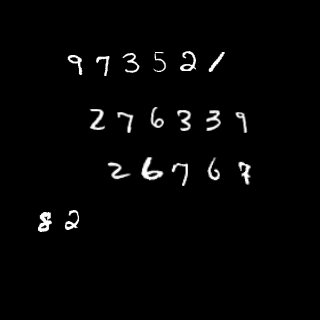 973521
276339
26767
82